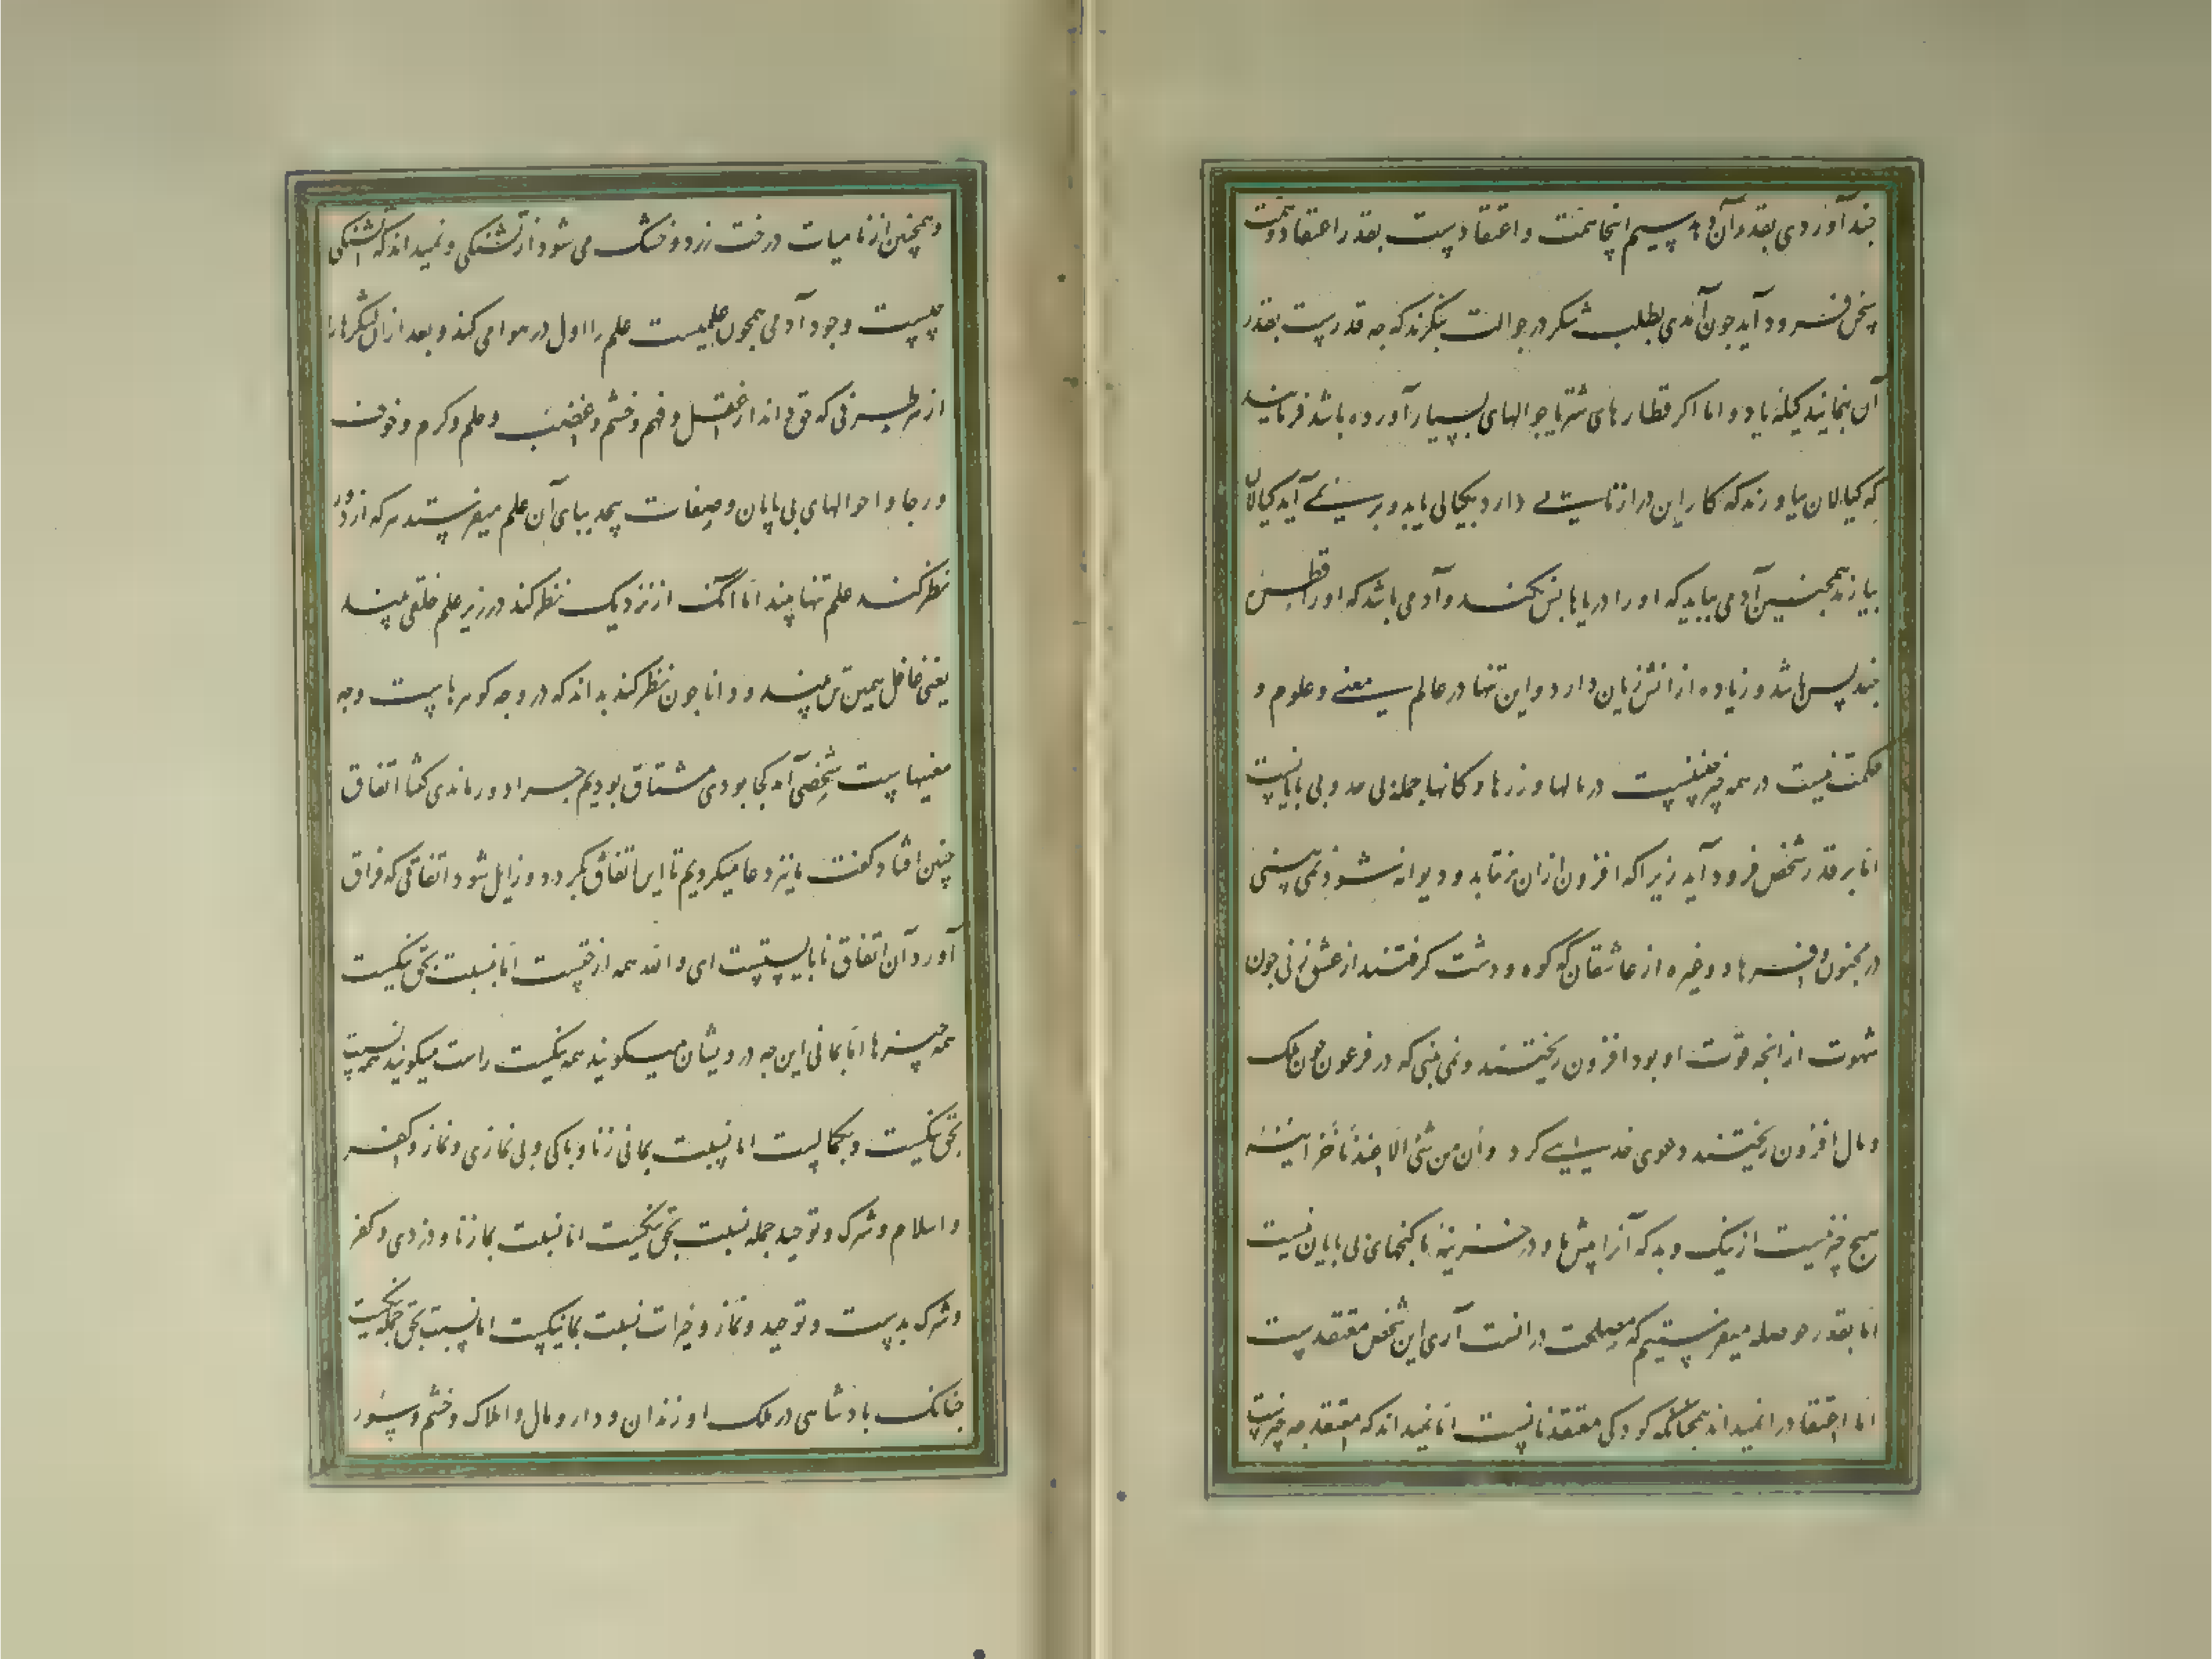 چند آوردی بقدر آن دهد پسیم اینجا همت و اعتقادست بقدر اعتقاد و همت
سخن فرود آید چون آمدی بطلب شکر در جوالت بنگرند که چه قدرست بقدر
آن بنپمایند کیله یا دو اما اگر قطارهای شتر با جوالهای بسیار آورده باشد فرمایند
که کیالان بیاورند که کار این دراز نایستی دارد بیکیالی یا بدو بر نمی آید کیالان
بیارند همچنین آدمی بیاید که او را دریاها بس نکند و آدمی باشد که او را قطره
چند بس باشد و زیاده از آنش زیان دارد و این تنها در عالم معنی و علوم و
حکمت نیست در همه چیز چنینست در مالها و زرها و کانها جمله بی حد و بی پایانست
اما بر قدر شخص فرود آید زیرا که افزون از آن بر نتابد و دیوانه شود نمی بینی
در مجنون و فرهاد و غیره از عاشقان که کوه و دشت گرفتند از عشق زنی چون
شهوت از آنچه قوت او بود افزون ریختند و نمی بینی که در فرعون چون ملک
و مال افزون ریختند دعوی خدایی کرد و ان من شئ الا عندنا خزائنه
هیچ چیز نیست از نیک و بد که آنرا پیش ما و در خزینه ما گنجهای بی پایان نیست
اما بقدر حوصله میفرستیم که مصلحت در آنست آری این شخص معتقدست
اما اعتقاد را نمیداند همچنانکه کودکی معتقد نانست اما نمیداند که معتقد چه چیزست
و همچنین از نامیات درخت زرد و خشک می شود از تشنگی و نمیداند که تشنگی
چیست وجود آدمی همچون علمیست علم را اول در هوا می کند و بعد از آن لشکرها را
از هر طرفی که حق داند از عقل و فهم و خشم و غضب و حلم و کرم و خوف
و رجا و احوالهای بی پایان و صفات بیحد بپای آن علم میفرستد هر که از دور
نظر کند علم تنها بیند اما آنک از نزدیک نظر کند در زیر علم خلقی بیند
یعنی غافل همین تن بیند و دانا چون نظر کند بداند که درو چه گوهرهاست و چه
معنیهاست شخصی آمد کجا بودی مشتاق بودیم چرا دور ماندی گفتا اتفاق
چنین افتاد گفت ما نیز دعا میکردیم تا این اتفاق بگردد و زایل شود اتفاقی که فراق
آورد آن اتفاق نابایستست ای والله همه از حقست اما نسبت بحق نیکست
همه چیزها اما بما نی این چه درویشان میگویند همه نیکست راست میگویند همه نسبت
بحق نیکست و بکمالست اما نسبت بما نی زنا و پاکی و بی نمازی و نماز و کفر
و اسلام و شرک و توحید جمله نسبت بحق نیکست اما نسبت بما زنا و دزدی و کفر
و شرک بدست و توحید و نماز و خیرات نسبت بما نیکست اما نسبت بحق جمله نیکست
چنانک پادشاهی در ملک او زندان و دار و مال و املاک و حشم و سور